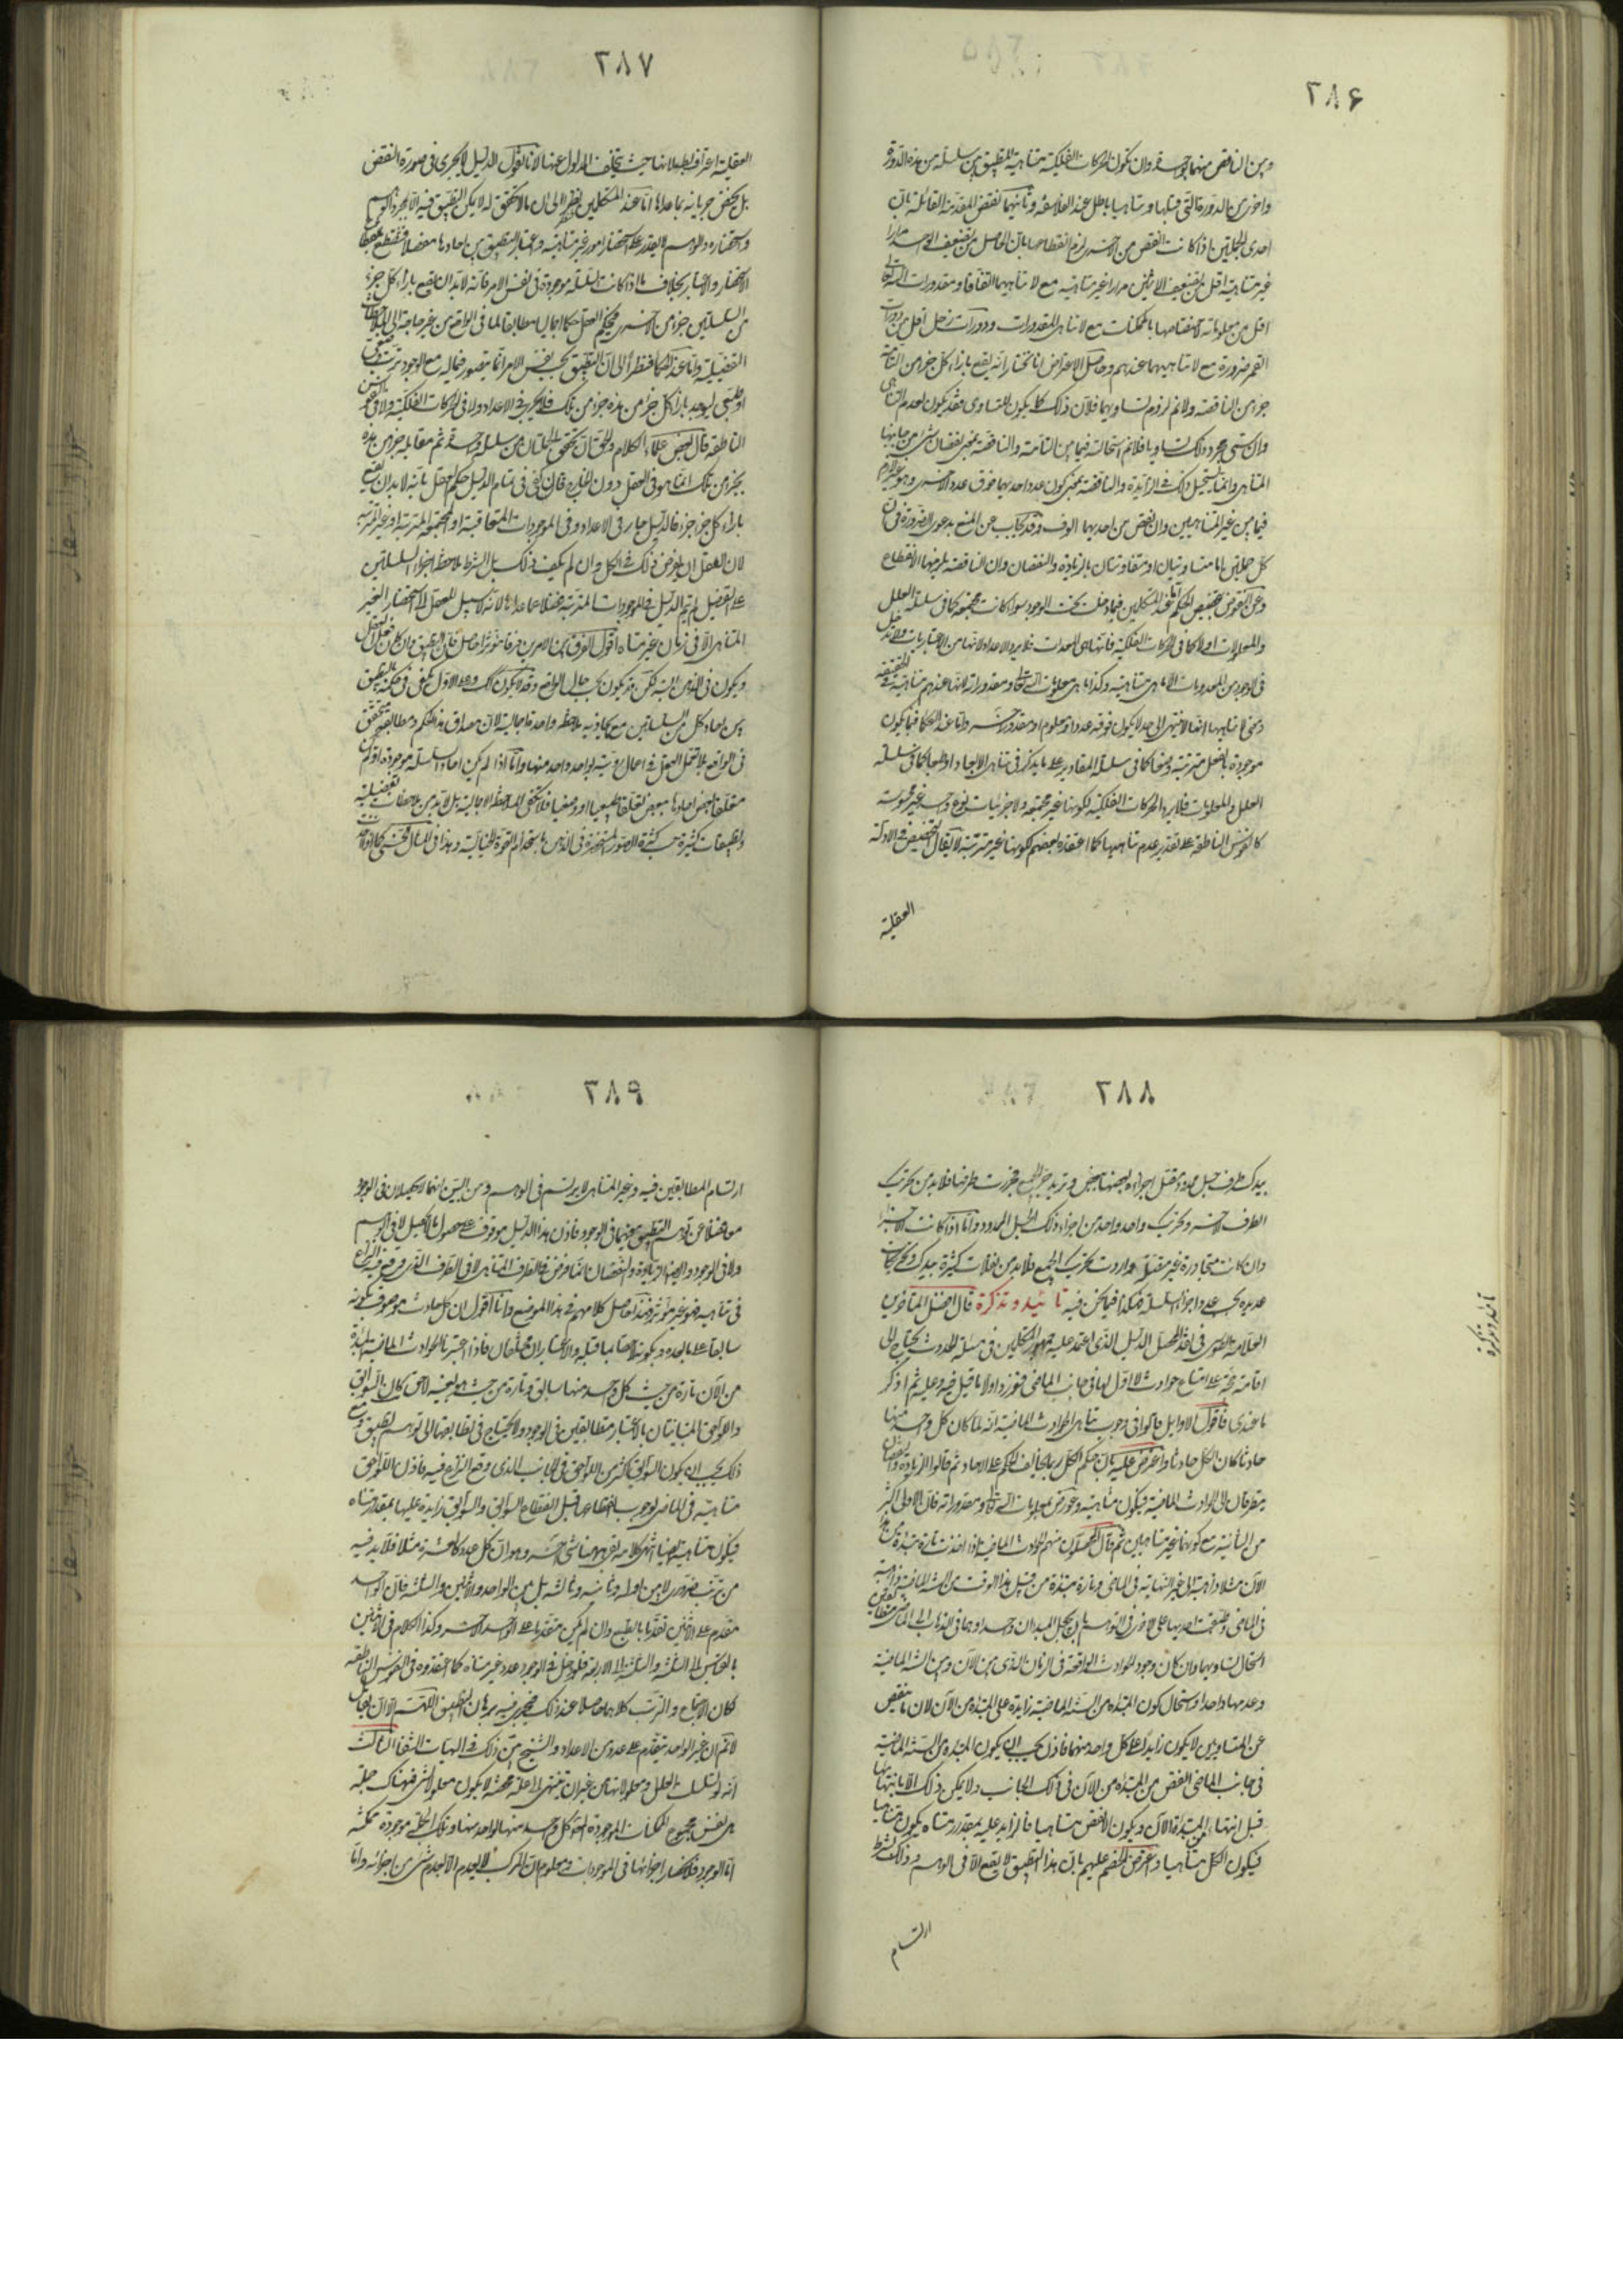 ٣٨۶
وبين الناقص منهما بواحدة وان تكون الحركات الفلكية متناهية للتطبيق بين سلسلة من هذه الدورة
واخرى من الدورة التى قبلها وتناهيها باطل عند الفلاسفة وثانيهما نقض المقدمة القائلة بان
احدى الجملتين اذا كانت انقص من الاخرى لزم انقطاعها بان الحاصل من تضعيف الواحد مرارا
غير متناهية اقل من تضعيف الاثنين مرارا غير متناهية مع لا تناهيهما اتفاقا ومقدورات الله تعالى
اقل من معلوماته لاختصاصها بالممكنات مع لا تناهى المقدورات ودورات زحل اقل من دورات
القمر ضرورة مع لا تناهيهما عندهم وحاصل الاعتراض انا نختار انه يقع بازاء كل جزء من التامة
جزء من الناقصة ولا نم لزوم تساويهما فان ذلك كما يكون للتساوى فقد يكون لعدم التناهى
وان سمى مجرد ذلك تساويا فلا نم استحالته فيما بين التامة والناقصة بمعنى نقصان شىء من جانبها
المتناهى وانما يستحيل ذلك فى الزائدة والناقصة بمعنى كون عدد احديهما فوق عدد الاخرى وهو غير لازم
فيما بين غير المتناهيين وان نقص من احديهما الوف وقد يجاب عن المنع بدعوى الضرورة فى ان
كل جملتين اما متساويتان او متفاوتتان بالزيادة والنقصان وان الناقصة يلزمها الانقطاع
وعن النقوض بتخصيص الحكم اما عند المتكلمين فبما دخلت تحت الوجود سواء كانت مجتمعة كما فى سلسلة العلل
والمعلولات او لا كما فى الحركات الفلكية فانها من المعدات فلا يرد الاعداد لانها من الاعتباريات ولا يدخل
فى الوجود من المعدودات الا ما هى متناهية وكذا ما هى معلومات الله تعالى ومقدوراته لانها عندهم متناهية فى الحقيقة
ومعنى لا تناهيها انها لا تنتهى الى حد لا يكون فوقه عدد او معلوم او مقدور اخر واما عند الحكماء فبما يكون
موجودة بالفعل مترتبة وضعا كما فى سلسلة المقادير على ما يذكر فى تناهى الابعاد او طبعا كما فى سلسلة
العلل والمعلولات فلا يرد الحركات الفلكية لكونها غير مجتمعة ولا جزئيات نوع واحد غير محسوسة
كالنفوس الناطقة على تقدير عدم تناهيها كما اعتقده بعضهم لكونها غير مترتبة لا يقال التخصيص فى الادلة
العقلية
٣٨٧
العقلية اعتراف ببطلانها حيث يتخلف المدلول عنها لانا نقول الدليل لا يجرى فى صورة النقض
بل يختص جريانه بما عداها اما عند المتكلمين فنظرا الى ان ما لا تحقق له لا يمكن التطبيق فيه الا بمجرد الوهم
واستحضاره والوهم لا يقدر على استحضار امور غير متناهية واعتبار التطبيق بين احادها مفصلا فينقطع بانقطاع
الاستحضار والاعتبار بخلاف ما اذا كانت السلسلة موجودة فى نفس الامر فانه لا بد ان يقع بازاء كل جزء
من السلسلتين جزء من الاخرى فيحكم العقل حكما اجماليا مطابقا لما فى الواقع من غير حاجة الى الملاحظات
التفصيلية واما عند الحكماء فنظرا الى ان التطبيق بحسب نفس الامر انما يتصور فيما له مع الوجود ترتب وضعى
او طبعى ليوجد بازاء كل جزء من هذه جزء من تلك فلا يجرى فى الاعداد ولا فى الحركات الفلكية ولا فى النفوس
الناطقة قال بعض علماء الكلام والحق ان تحقق الجملتان من سلسلة واحدة ثم مقابلة جزء من هذه
بجزء من تلك انما هو فى العقل دون الخارج فان كفى فى تمام الدليل حكم العقل بانه لا بد ان يقع
بازاء كل جزء جزء فالدليل جار فى الاعداد وفى الموجودات المتعاقبة او المجتمعة المترتبة او غير المترتبة
لان للعقل ان يفرض ذلك فى الكل وان لم يكف ذلك بل اشترط ملاحظة اجزاء السلسلتين
على التفصيل لم يتم الدليل فى الموجودات المترتبة فضلا عما عداها لانه لا سبيل للعقل الى استحضار الغير
المتناهى الا فى زمان غير متناه اقول الفرق بين الامرين فرقا مؤثرا حاصل فان التطبيق وان كان فعل العقل
ويكون فى الذهن البتة لكن قد يكون بحسب حال الواقع وقد لا يكون كذلك وعلى الاول يكفى فى حكمه بالتطبيق
بين احاد كل من السلسلتين مع ما يحاذيه ملاحظة واحدة اجمالية لان مصداق هذا الحكم ومطابقه متحقق
فى الواقع بلا تعمل العقل فى اعمال روية لواحد واحد منها واما اذا لم يكن احاد السلسلة موجودة او لم يكن
متعلقا بعض احادها ببعض تعلقا طبيعيا او وضعيا فلا تكفى الملاحظة الاجمالية بل لا بد من ملاحظات تفصيلية
وتطبيقات كثيرة حسب كثرة الصور المستحضرة فى الذهن باستخدام القوة الخيالية وهذا فى المثال الحسى كما اذا اخذت
٣٨٨
بيدك طرف حبل ممدود متصل اجزاءه بعضها ببعض وتريد جر الجميع فجررت طرفها فلا بد من تحريك
الطرف الاخر وتحريك واحد واحد من اجزاء ذلك الحبل الممدود واما اذا كانت الاجزاء
وان كانت متجاورة غير متصلة واردت تحريك الجميع فلا بد من نقلات كثيرة بيدك وتحريكات
عديدة بحسب عدد اجزاء السلسلة فهكذا فيما نحن فيه تائيد وتذكرة قال افضل المتاخرين
العلامة الطوسى فى نقد المحصل الدليل الذى اعتمد عليه جمهور المتكلمين فى مسئلة الحدوث يحتاج الى
اقامة حجة على امتناع حوادث لا اول لها فى جانب الماضى فنورد اولا ما قيل فيه وعليه ثم اذكر
ما عندى فاقول الاوايل قالوا فى وجوب تناهى الحوادث الماضية انه لما كان كل واحد منها
حادثا كان الكل حادثا واعترض عليه بان حكم الكل ربما يخالف الحكم على الاحاد ثم قالوا الزيادة والنقصان
يتطرقان الى الحوادث الماضية فيكون متناهية وعورض بمعلومات الله تعالى ومقدوراته فان الاولى اكثر
من الثانية مع كونهما غير متناهيين ثم قال المحصلون منهم الحوادث الماضية اذا اخذت تارة مبتدءة من
الآن مثلا ذاهبة الى غير النهاية فى الماضى وتارة مبتدءة من قبل هذا الوقت من السنة الماضية ذاهبة
فى الماضى وطبقت احديهما على الاخرى فى التوهم بان يجعل المبدان واحدا وهما فى الذهاب الى الماضى متطابقين
استحال تساويهما والا كان وجود الحوادث الواقعة فى الزمان الذى بين الآن وبين السنة الماضية
وعدمها واحدا واستحال كون المبتداه من السنة الماضية زايدة على المبتداه من الآن لان ما ينقص
عن المتساويين لا يكون زايدا على كل واحد منهما فاذن يجب ان يكون المبتداه من السنة الماضية
فى جانب الماضى انقص من المبتداه من الآن فى ذلك الجانب ولا يمكن ذلك الا بانتهائها
قبل انتهاء المبتداة من الآن ويكون الانقص متناهيا فالزايد عليه بمقدار متناه يكون متناهيا
فيكون الكل متناهيا واعترض الخصم عليهم بان هذا التطبيق لا يقع الا فى الوهم وذلك بشرط
ارتسام
تائيد وتذكرة
٣٨٩
ارتسام المتطابقين فيه وغير المتناهى لا يرتسم فى الوهم ومن البين انهما لا يحصلان فى الوجود
معا فضلا عن توهم التطبيق بينهما فى الوجود فاذن هذا الدليل موقوف على حصول ما لا يحصل لا فى الوهم
ولا فى الوجود وايضا الزيادة والنقصان انما فرض فى الطرف المتناهى لا فى الطرف الذى وقع فيه النزاع
فى تناهيه فهو غير مؤثر فهذا حاصل كلامهم فى هذا الموضع وانا اقول ان كل حادث موصوف بكونه
سابقا على ما بعده وبكونه لاحقا بما قبله والاعتباران مختلفان فاذا اعتبرنا الحوادث الماضية المبتدءة
من الآن تارة من حيث كل واحد منها سابق وتارة من حيث هو بعينه لاحق كان السوابق
واللواحق المتباينتان بالاعتبار متطابقتين فى الوجود ولا يحتاج فى تطابقهما الى توهم تطبيق ومع
ذلك يجب ان يكون السوابق اكثر من اللواحق فى الجانب الذى وقع النزاع فيه فاذن اللواحق
متناهية فى الماضى لوجوب انقطاعها قبل انقطاع السوابق والسوابق زايدة عليها بمقدار متناه
فيكون متناهية ايضا انتهى كلامه بقى ههنا شىء اخر وهو ان كل عدد كالعشرة مثلا فلا بد فيه
من ترتب ضرورى لا بين اوله وثانيه وثالثه بل بين الواحد والاثنين والثلثة فان الواحد
متقدم على الاثنين تقدما بالطبع وان لم يكن متقدما على الواحد الاخر وكذا الكلام فى الاثنين
بالقياس الى الثلثة والثلثة الى الاربعة فلو دخل فى الوجود عدد غير متناه كما اعتقدوه فى النفوس الناطقة
لكان الاجتماع والترتب كلاهما حاصلا عند ذلك فيجرى فيه برهان التطبيق اللهم الا ان يقال
لا نم ان غير الواحد يتقدم على عدد من الاعداد والشيخ بين ذلك فى الهيات الشفاء الثالث
انه لو تسلسلت العلل ومعلولاتها من غير ان تنتهى الى علة محضة لا يكون معلولا لشىء فهناك جملة
هى نفس مجموع الممكنات الموجودة المعلول كل واحد منها لواحد منها وتلك الجملة موجودة ممكنة
اما الوجود فلانحصار اجزائها فى الموجودات ومعلوم ان المركب لا يعدم الا بعدم شىء من اجزائه واما